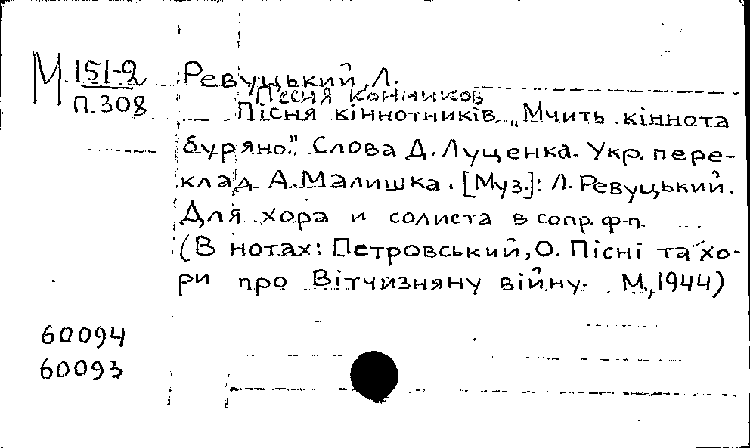 М 151-2 Ревуцький, Л.
П.308 Песня конников
Пісня кіннотників „Мчить кіннота
буряно". Слова Д. Луценка. Укр. пере-
клад А. Малишка. [Муз.]: Л. Ревуцький.
Для хора и солиста в сопр. ф-п.
(В нотах: Петровський, О. Пісні та хо-
ри про Вітчизняну війну. М., 1944)
60094
60093